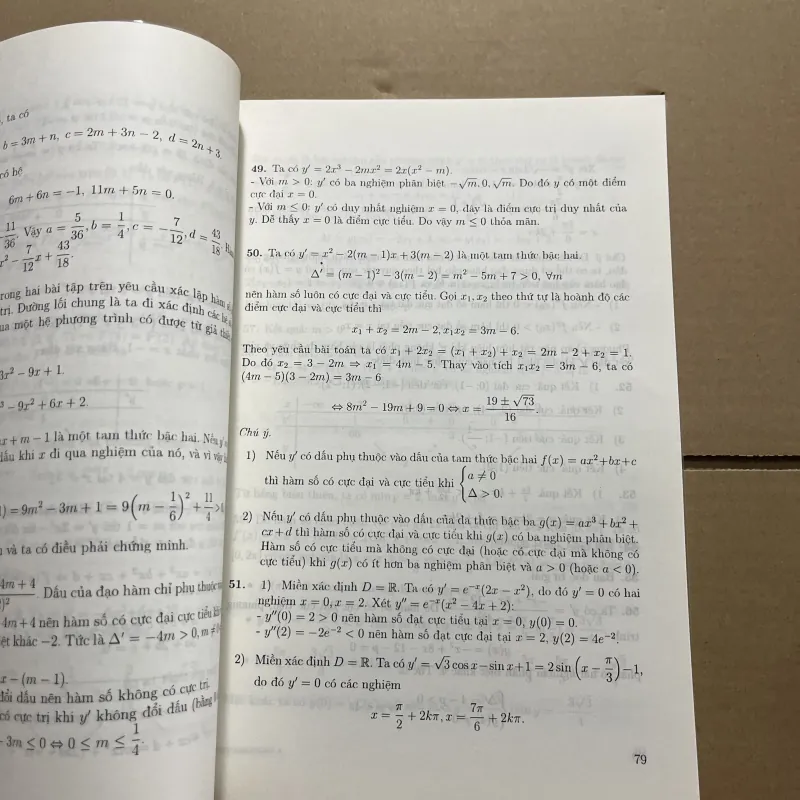 , ta có
b = 3m + n, c = 2m + 3n − 2, d = 2n + 3.
có hệ
6m + 6n = −1, 11m + 5n = 0.
11/36. Vậy a = 5/36, b = 1/4, c = −7/12, d = 43/18.
x² − 7/12 x + 43/18.
rong hai bài tập trên yêu cầu xác lập hàm
trị. Đường lối chung là ta đi xác định các hệ
ua một hệ phương trình có được từ giả
3x² − 9x + 1.
− 9x² + 6x + 2.
x + m − 1 là một tam thức bậc hai. Nếu
dấu khi x đi qua nghiệm của nó, và vì vậy
) = 9m² − 3m + 1 = 9(m − 1/6)² + 11/4 >
và ta có điều phải chứng minh.
4m + 4
)². Dấu của đạo hàm chỉ phụ thuộc
4m + 4 nên hàm số có cực đại cực tiểu
ệt khác −2. Tức là Δ′ = −4m > 0, m ≠
x − (m − 1).
đổi dấu nên hàm số không có cực trị.
có cực trị khi y′ không đổi dấu (bằng
− 3m ≤ 0 ⇔ 0 ≤ m ≤ 1/4.
49. Ta có y′ = 2x³ − 2mx² = 2x(x² − m).
- Với m > 0: y′ có ba nghiệm phân biệt −√m, 0, √m. Do đó y có một điểm
cực đại x = 0.
- Với m ≤ 0: y′ có duy nhất nghiệm x = 0, đây là điểm cực trị duy nhất của
y. Dễ thấy x = 0 là điểm cực tiểu. Do vậy m ≤ 0 thỏa mãn.
50. Ta có y′ = x² − 2(m − 1)x + 3(m − 2) là một tam thức bậc hai.
Δ′ = (m − 1)² − 3(m − 2) = m² − 5m + 7 > 0, ∀m
nên hàm số luôn có cực đại và cực tiểu. Gọi x₁, x₂ theo thứ tự là hoành độ các
điểm cực đại và cực tiểu thì
x₁ + x₂ = 2m − 2, x₁x₂ = 3m − 6.
Theo yêu cầu bài toán ta có x₁ + 2x₂ = (x₁ + x₂) + x₂ = 2m − 2 + x₂ = 1.
Do đó x₂ = 3 − 2m ⇒ x₁ = 4m − 5. Thay vào tích x₁x₂ = 3m − 6, ta có
(4m − 5)(3 − 2m) = 3m − 6
⇔ 8m² − 19m + 9 = 0 ⇔ x = (19 ± √73)/16.
Chú ý.
1) Nếu y′ có dấu phụ thuộc vào dấu của tam thức bậc hai f(x) = ax² + bx + c
thì hàm số có cực đại và cực tiểu khi { a ≠ 0
Δ > 0.
2) Nếu y′ có dấu phụ thuộc vào dấu của đa thức bậc ba g(x) = ax³ + bx² +
cx + d thì hàm số có cực đại và cực tiểu khi g(x) có ba nghiệm phân biệt.
Hàm số có cực tiểu mà không có cực đại (hoặc có cực đại mà không có
cực tiểu) khi g(x) có ít hơn ba nghiệm phân biệt và a > 0 (hoặc a < 0).
51. 1) Miền xác định D = ℝ. Ta có y′ = e⁻ˣ(2x − x²), do đó y′ = 0 có hai
nghiệm x = 0, x = 2. Xét y″ = e⁻ˣ(x² − 4x + 2):
- y″(0) = 2 > 0 nên hàm số đạt cực tiểu tại x = 0, y(0) = 0.
- y″(2) = −2e⁻² < 0 nên hàm số đạt cực đại tại x = 2, y(2) = 4e⁻².
2) Miền xác định D = ℝ. Ta có y′ = √3 cos x − sin x + 1 = 2 sin(x − π/3) − 1,
do đó y′ = 0 có các nghiệm
x = π/2 + 2kπ, x = 7π/6 + 2kπ.
79